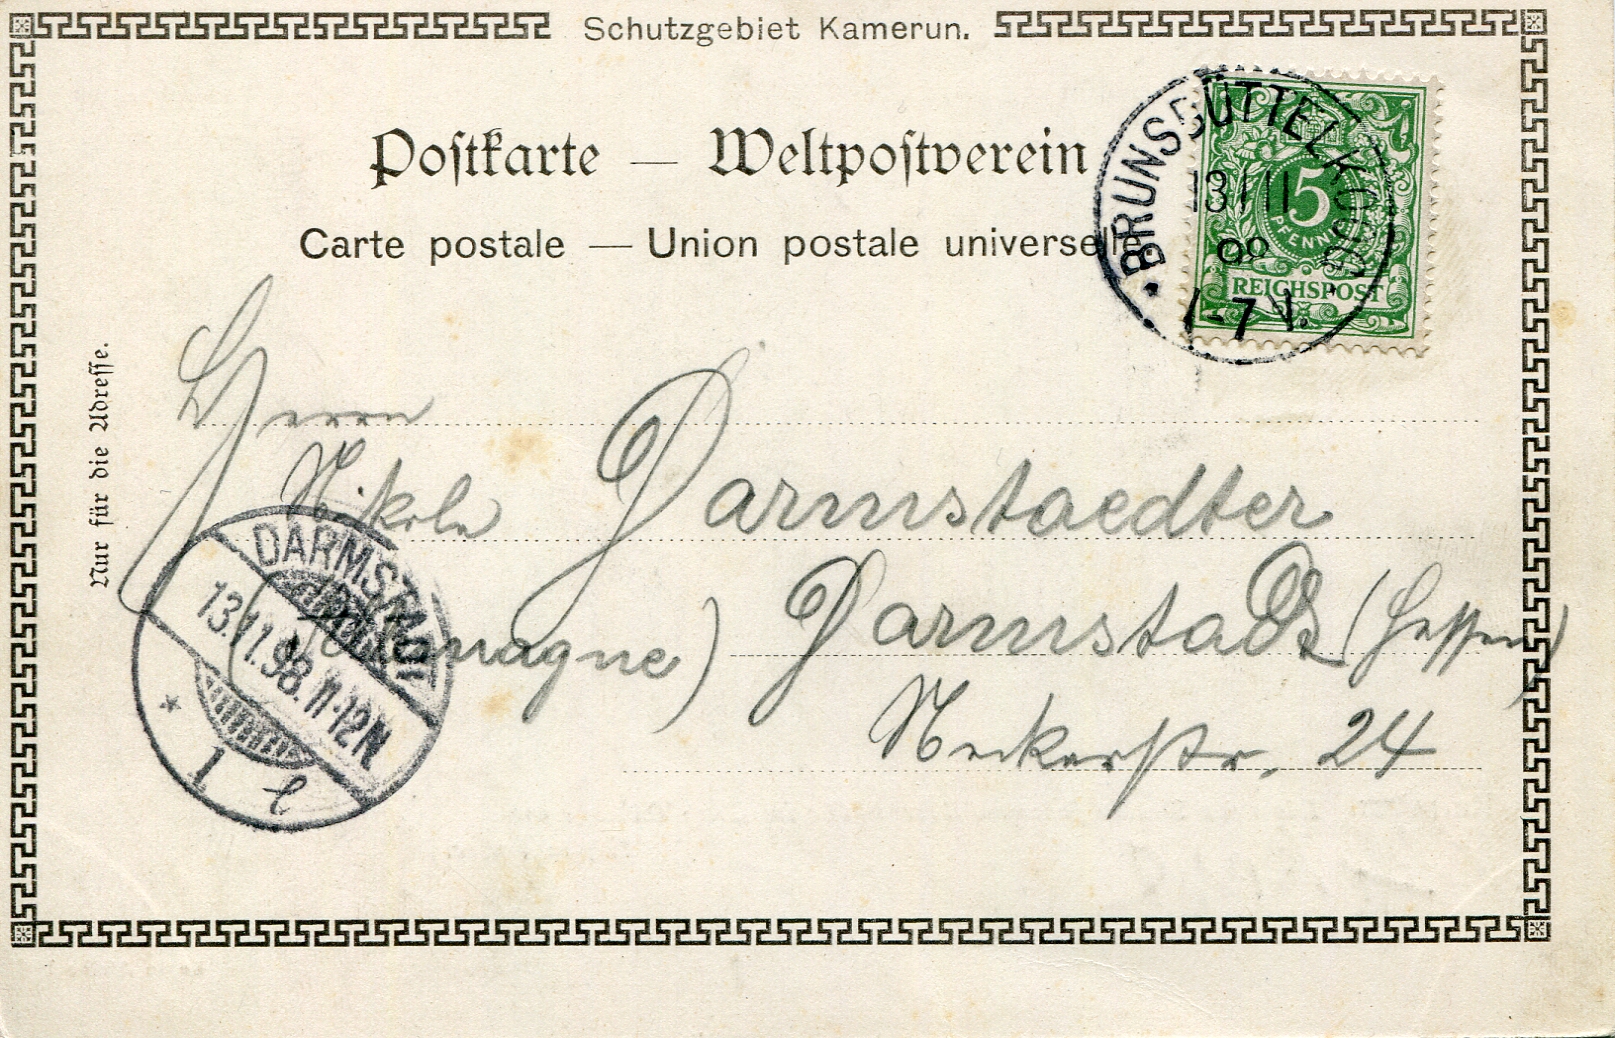 Schutzgebiet Kamerun.
Postkarte — Weltpostverein
Carte postale — Union postale universelle
BRUNSBÜTTELKOOG
13/11
98
7 V.
5
PFENNIG
REICHSPOST
Nur für die Adresse.
Herrn
Darmstaedter
(Allemagne) Darmstadt (Hessen)
Neckerstr. 24
DARMSTADT
13.11.98. 11-12N
* 1 l